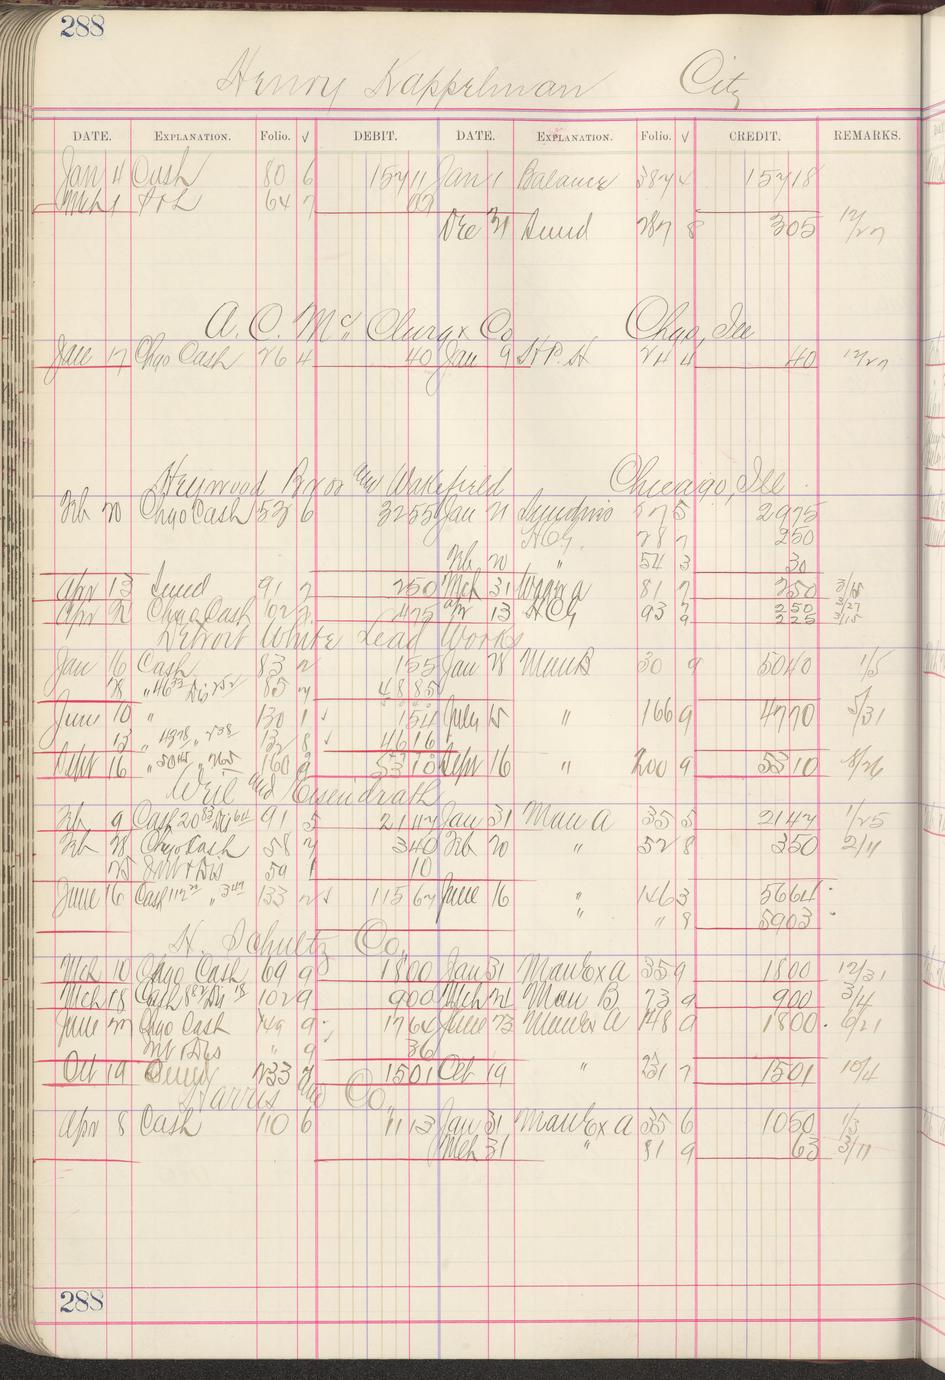 288
Henry Kappelman City
DATE. EXPLANATION. Folio. √ DEBIT. DATE. EXPLANATION. Folio. √ CREDIT. REMARKS.
Jan 4 Cash 80 6 157 11 Jan 1 Balance 387 4 157 18
Mch 1 P & L 64 7 07
Dec 31 Sund 287 8 3 05 12/27
A. C. McClurg & Co Chgo, Ill
Jan 17 Chgo Cash 26 4 40 Jan 9 St P. St 24 4 40 12/27
Heywood Bros and Wakefield Chicago, Ill
Feb 20 Chgo Cash 53 6 32 55 Jan 21 575 29 75
H C G 28 7 2 50
Feb 20 " 54 3 30
Apr 13 Sund 91 2 2 50 Mch 31 81 7 2 50 3/15
Apr 21 Chgo Cash 102 4 75 Apr 13 H C G 93 7 2 50 3/27
9 2 25 3/15
Detroit White Lead Works
Jan 16 Cash 83 2 1 55 Jan 28 Man B 30 9 50 40 1/5
28 " 85 48 85
June 10 " 130 1 √ 1 54 July 15 " 166 9 47 70 5/31
13 " 132 8 √ 46 16
Sept 16 " 160 9 53 10 Sept 16 " 200 9 53 10 8/26
Weil and Eisendrath
Feb 9 Cash 91 5 21 47 Jan 31 Man A 35 5 21 47 1/25
Feb 28 Chgo Cash 58 3 40 Feb 20 " 52 8 3 50 2/11
25 Int & Dis 59 1 10
June 16 Cash 133 2 √ 115 67 June 16 " 146 3 56 64
" " 8 59 03
H. Schultz Co.
Mch 10 Chgo Cash 69 9 18 00 Jan 31 Man Ex A 35 9 18 00 12/31
Mch 18 Cash 102 9 9 00 Mch 21 Man B 73 9 9 00 3/4
June 22 Chgo Cash 149 9 17 64 June 23 Man Ex A 148 9 18 00
Int & Dis " 9 36
Oct 19 Sund 233 7 15 01 Oct 19 " 231 7 15 01 10/4
Harris and Co.
Apr 8 Cash 110 6 11 13 Jan 31 Man Ex A 35 6 10 50 1/3
Mch 31 " 81 9 63 3/11
288